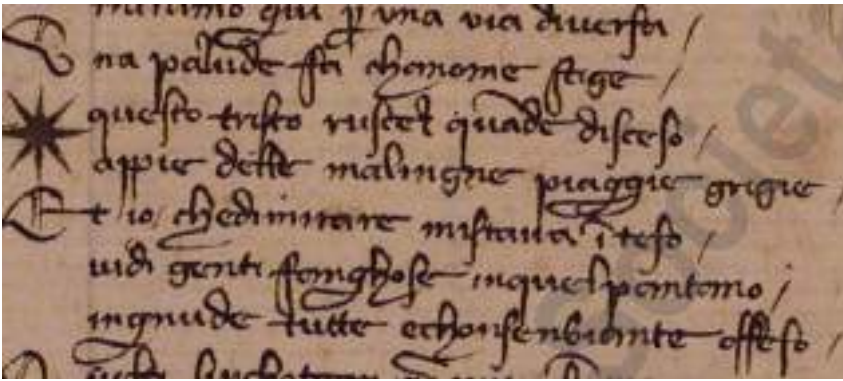 qui p una via diversa /
Una palude fa chanome stige /
questo tristo ruscel quade disceso /
appie delle malingne piaggie grigie /
Et io chedimirare mistava iteso /
vidi genti fanghose inquelpantano /
ingnude tutte echonsenbiante offeso /